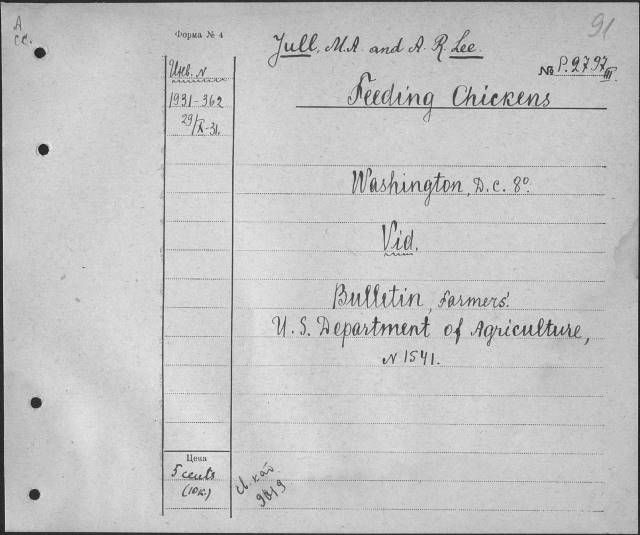 A
cc.
Форма № 4
91
Jull, M.A. and A. R. Lee.
№ P.2797
III
Инв. N
1931-362
29/X-31.
Feeding Chickens
Washington, D.C. 8º.
Vid.
Bulletin, Farmers'.
U.S. Department of Agriculture,
N 1541.
Цена
5 cents
(10к.)
9819